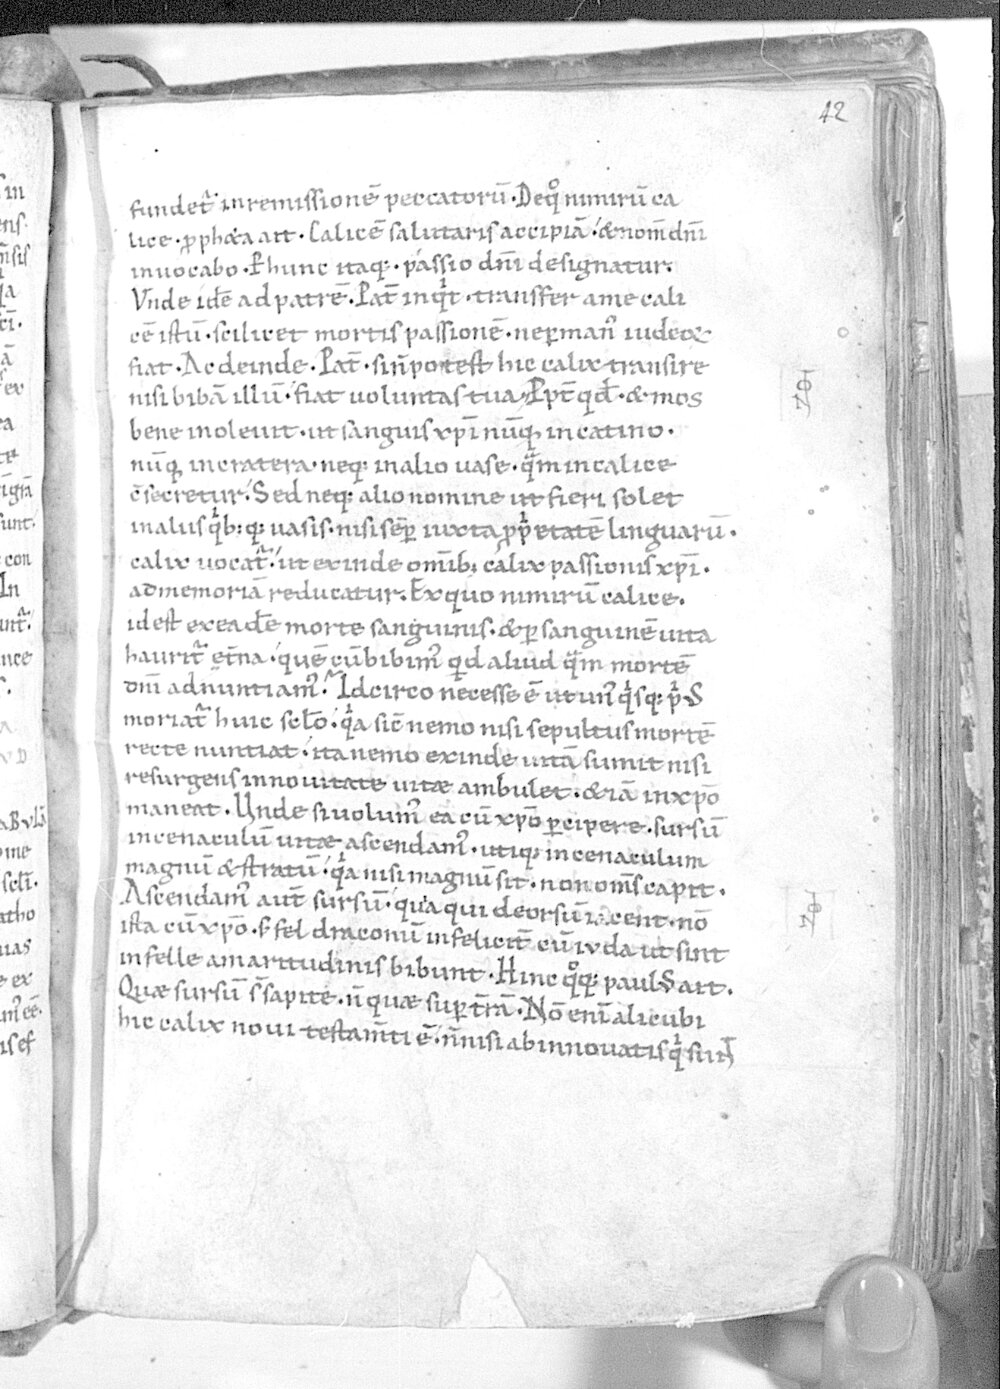 42
fundet᷑ in remissionē peccatorū · De qͦ nimirū ca
lice · ꝓpheta ait · Calicē salutaris accipiā · & nom̄ dn̄i
inuocabo · P hunc itaq; · passio dn̄i designatur.
Vnde idē ad patrē · Pat̄ inqͥt · transfer a me cali
cē istū · scilicet mortis passionē · ne ꝑ manꝰ iudeoꝝ
fiat · Ac deinde · Pat̄ · si n̄ potest hic calix transire
nisi bibā illū · fiat uoluntas tua · Ppt̄ qd̄ · & mos
bene inoleuit · ut sanguis xp̄i nūq̨ in catino ·
nūq̨ in cratera · neq; in alio uase · qᷓm in calice
c̄secretur · Sed neq; alio nomine ut fieri solet
in aliis qͥb; q; uasis · nisi sēꝑ iuxta ꝓpͥetatē linguarū ·
calix uocat᷑ · ut exinde om̄ib; calix passionis xp̄i ·
ad memoriā reducatur. Ex quo nimirū calice ·
id est ex eadē morte sanguinis · & ꝑ sanguinē uita
haurit᷑ et̄na · quē cū bibimꝰ qd aliud qᷓm mortē
dn̄i adnuntiamꝰ · Idcirco necesse ē ut unꝰqͥsq; pͥꝰS
moriat᷑ huic sclō · qͥa sic̄ nemo nisi sepultus mortē
recte nuntiat · ita nemo exinde uitā sumit nisi
resurgens in nouitate uitæ ambulet · & iā in xp̄o
maneat · Unde si uolumꝰ eā cū xp̄o ꝑcipere · sursū
in cenaculū uitæ ascendamꝰ · utiq; in cenaculum
magnū & stratū · qͥa nisi magnū sit · non om̄s capit ·
Ascendamꝰ aut̄ sursū · quia qui deorsū iacent · nō
ista cū xp̄o · s; fel draconū infelicit̄ cū iuda ut sint
in felle amaritudinis bibunt · Hinc qͦq; paulS ait ·
Quæ sursū s̄ sapite · n̄ quæ suꝑ t̄rā · Nō enī alicubi
hic calix noui testam̄ti ē · n̄ nisi ab innouatis qͥ sur